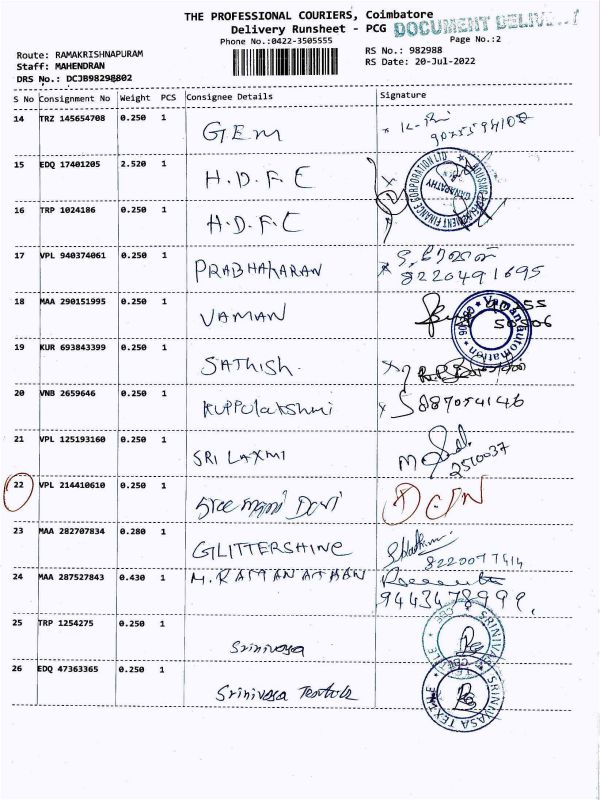 THE PROFESSIONAL COURIERS, Coimbatore
Delivery Runsheet - PCG
DOCUMENT DELIVE
Phone No.:0422-3505555
Page No.:2
Route: RAMAKRISHNAPURAM
RS No.: 982988
Staff: MAHENDRAN
RS Date: 20-Jul-2022
DRS No.: DCJB98298802
S No Consignment No Weight PCS Consignee Details Signature
14 TRZ 145654708 0.250 1 GEM
15 EDQ 17401205 2.520 1 H.D.F.C
16 TRP 1024186 0.250 1 H.D.F.C
17 VPL 940374061 0.250 1 PRABHAKARAN 8220491695
18 MAA 290151995 0.250 1 VAMAN
19 KUR 693843399 0.250 1 SATHISH.
20 VNB 2659646 0.250 1 KUPPULAKSHMI
21 VPL 125193160 0.250 1 SRI LAXMI 2510037
22 VPL 214410610 0.250 1 Sree Mani Devi
23 MAA 282707834 0.280 1 GLITTERSHINE
24 MAA 287527843 0.430 1 M.RATHANATHAN 9443478999
25 TRP 1254275 0.250 1 Srinivasa
26 EDQ 47363365 0.250 1 Srinivasa Textile SRINIVASA TEXTILE